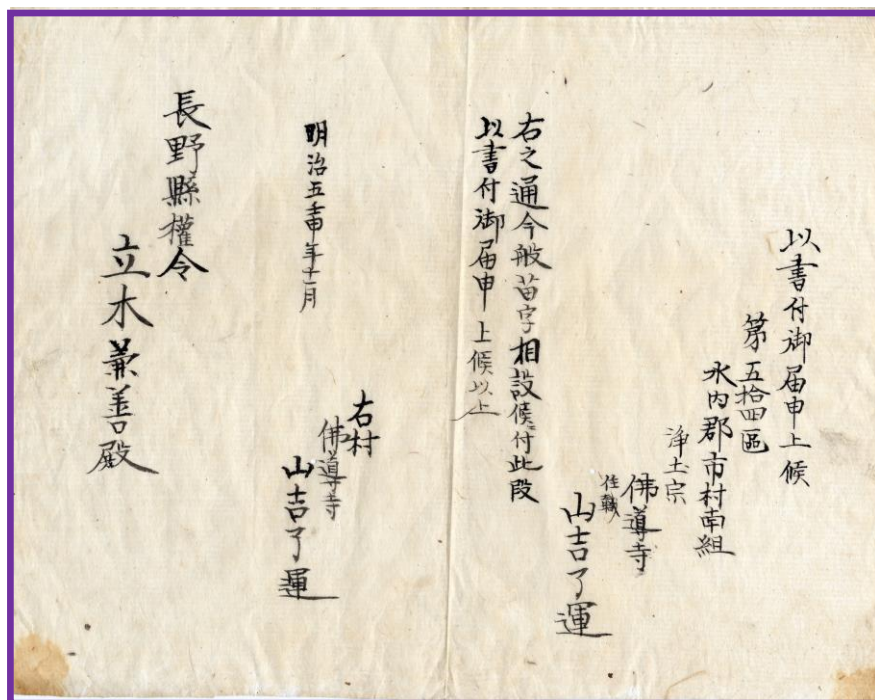 以書付御届申上候
第五拾四區
水内郡市村南組
浄土宗
佛導寺
住職
山吉了運
右之通今般苗字相設候付此段
以書付御届申上候以上
明治五壬申年十一月
右村
佛導寺
山吉了運
長野縣權令
立木兼善殿